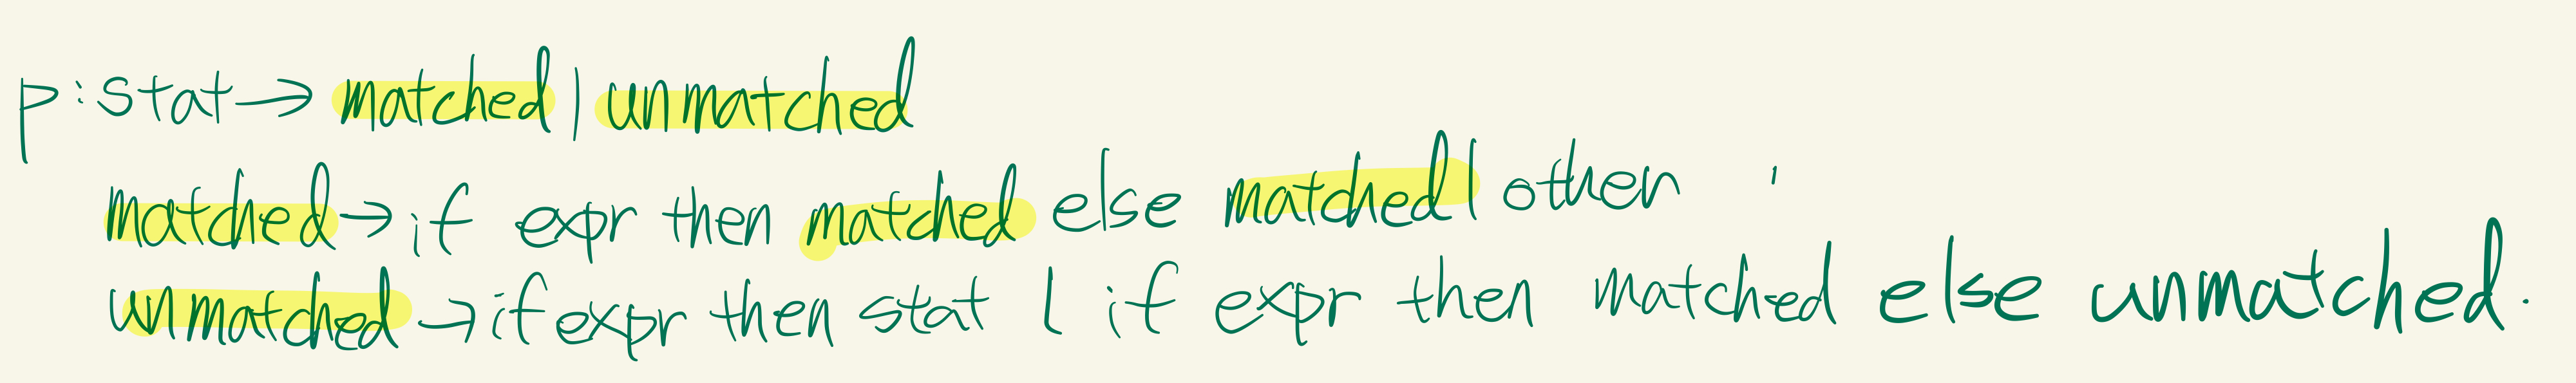 p:stat→ matched | unmatched
matched→if expr then matched else matched | other
unmatched →if expr then stat | if expr then matched else unmatched.